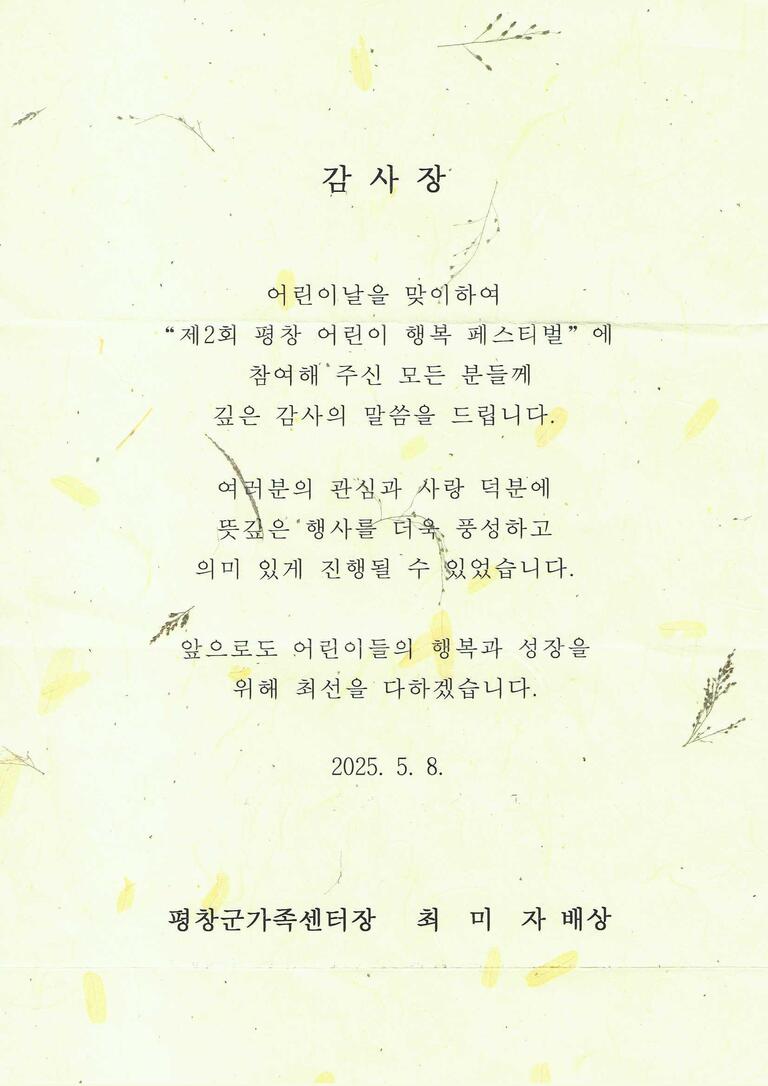 감 사 장
어린이날을 맞이하여
“제2회 평창 어린이 행복 페스티벌” 에
참여해 주신 모든 분들께
깊은 감사의 말씀을 드립니다.
여러분의 관심과 사랑 덕분에
뜻깊은 행사를 더욱 풍성하고
의미 있게 진행될 수 있었습니다.
앞으로도 어린이들의 행복과 성장을
위해 최선을 다하겠습니다.
2025. 5. 8.
평창군가족센터장 최 미 자 배상